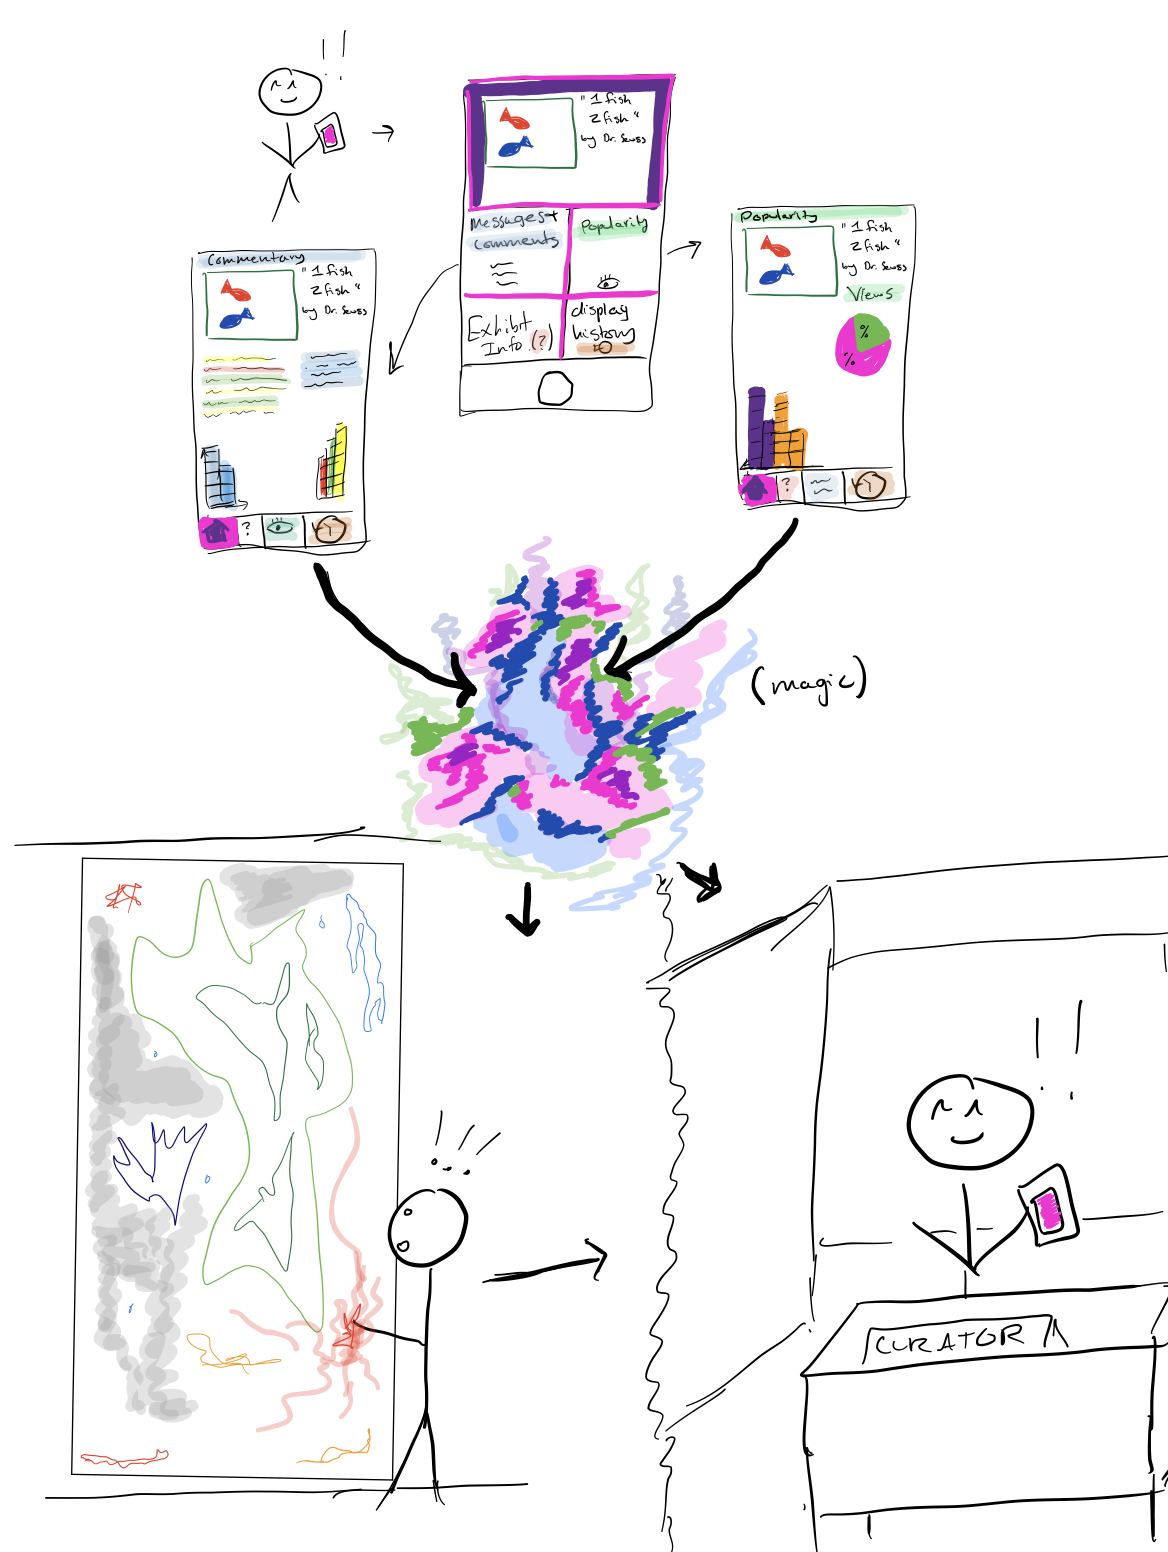 ! !
"1 fish
2 fish"
by Dr. Seuss
Messages +
Comments
Popularity
Exhibit
Info (?)
display
history
Commentary
"1 fish
2 fish"
by Dr. Seuss
?
Popularity
"1 fish
2 fish"
by Dr. Seuss
Views
%
%
?
(magic)
! ! !
! !
CURATOR